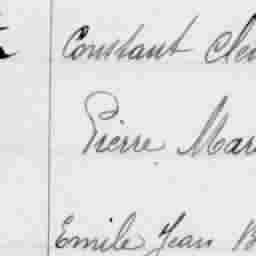 Constant Cle
Pierre Mar
Emile Jean B